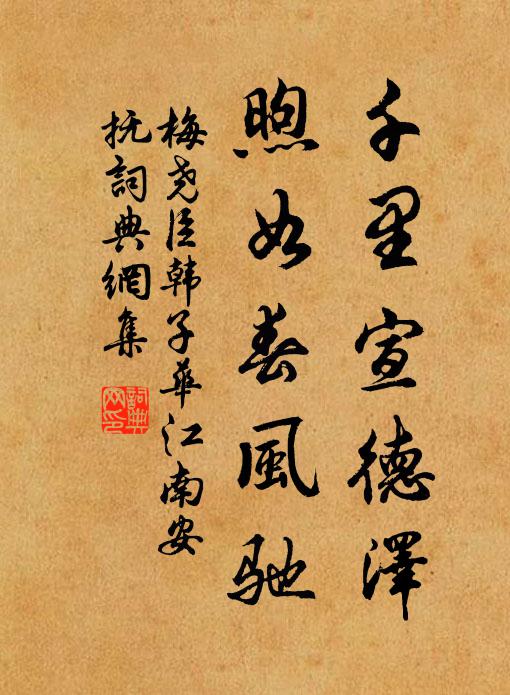 千里宣德澤
煦如春風馳
梅尧臣韩子華江南安
抚詞典網集
詞典網印